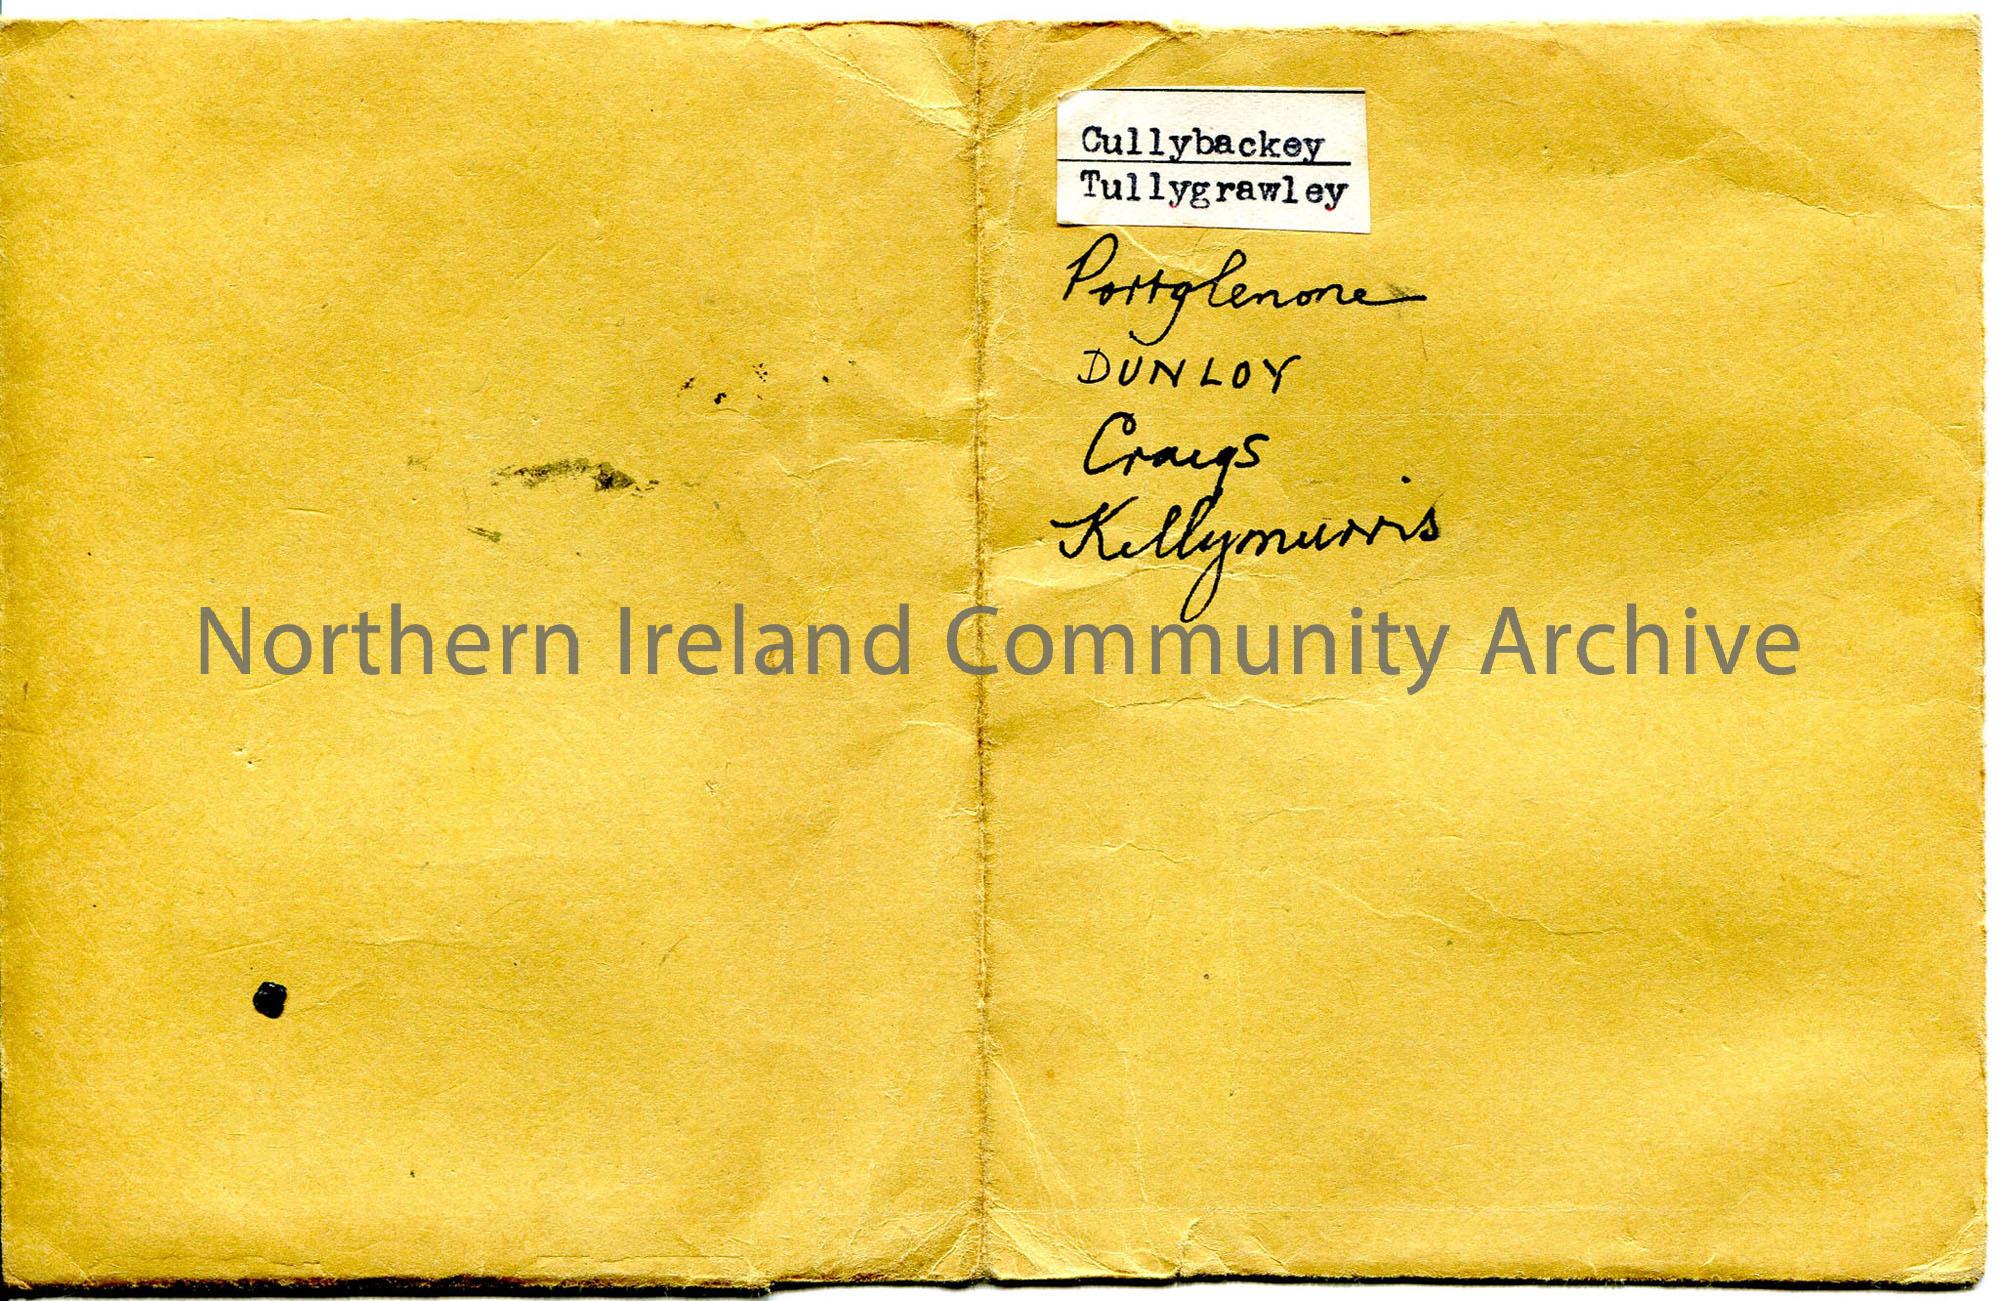 Cullybackey
Tullygrawley
Portglenone
DUNLOY
Craigs
Killymurris
Northern Ireland Community Archive